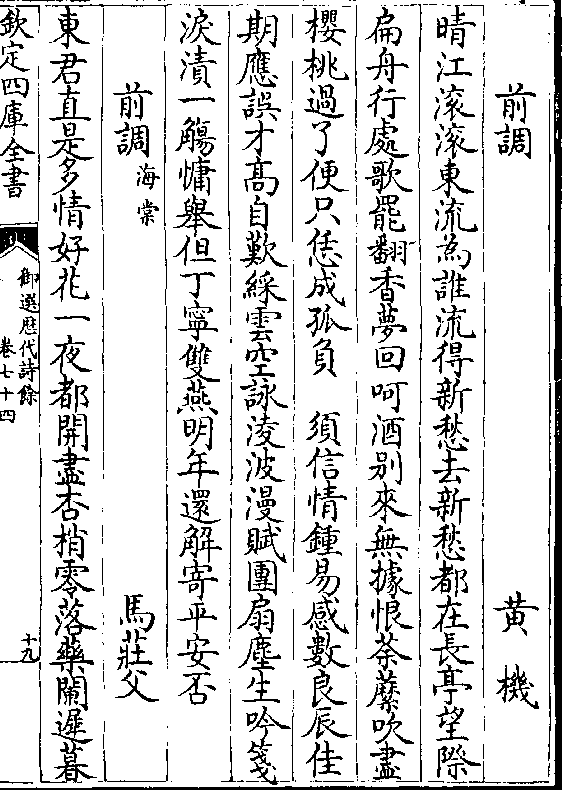 前調　黄機
晴江滚滚東流為誰流得新愁去新愁都在長亭望際
扁舟行處歌罷翻香夢回呵酒别來無據恨荼䕷吹盡
櫻桃過了便只恁成孤負　須信情鍾易感數良辰佳
期應誤才髙自歎綵雲空詠淩波漫賦團扇塵生吟箋
淚漬一觴慵舉但丁寧雙燕明年還解寄平安否
前調海棠　馬莊父
東君直是多情好花一夜都開盡杏梢零落藥闌遲暮
欽定四庫全書
御選歴代詩餘
卷七十四
十九